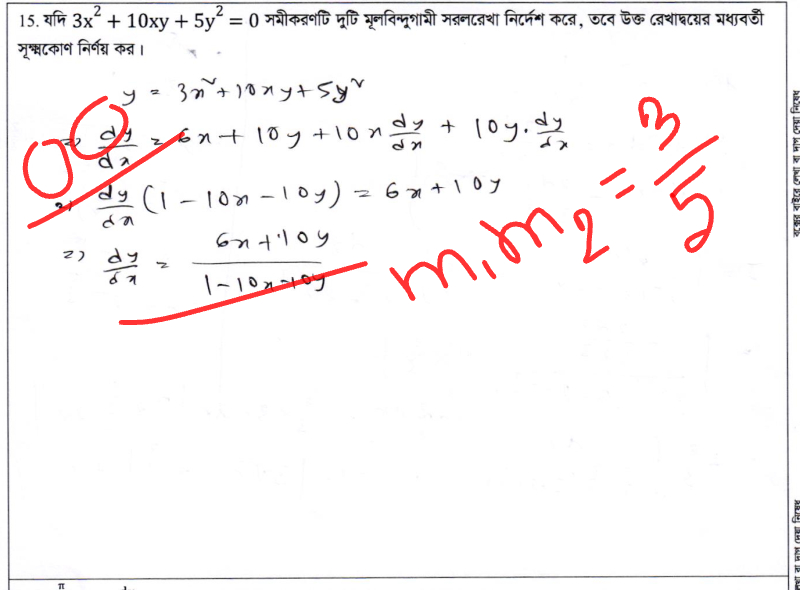 15. যদি 3x² + 10xy + 5y² = 0 সমীকরণটি দুটি মূলবিন্দুগামী সরলরেখা নির্দেশ করে, তবে উক্ত রেখাদ্বয়ের মধ্যবর্তী
সূক্ষ্মকোণ নির্ণয় কর।
y = 3x² + 10xy + 5y²
00
=> dy/dx = 6x + 10y + 10x dy/dx + 10y. dy/dx
=> dy/dx (1 - 10x - 10y) = 6x + 10y
m₁m₂ = 3/5
=> dy/dx = (6x + 10y)/(1 - 10x - 10y)
বক্সের বাইরে লেখা বা দাগ দেয়া নিষেধ
বা দাগ দেয়া নিষেধ
π